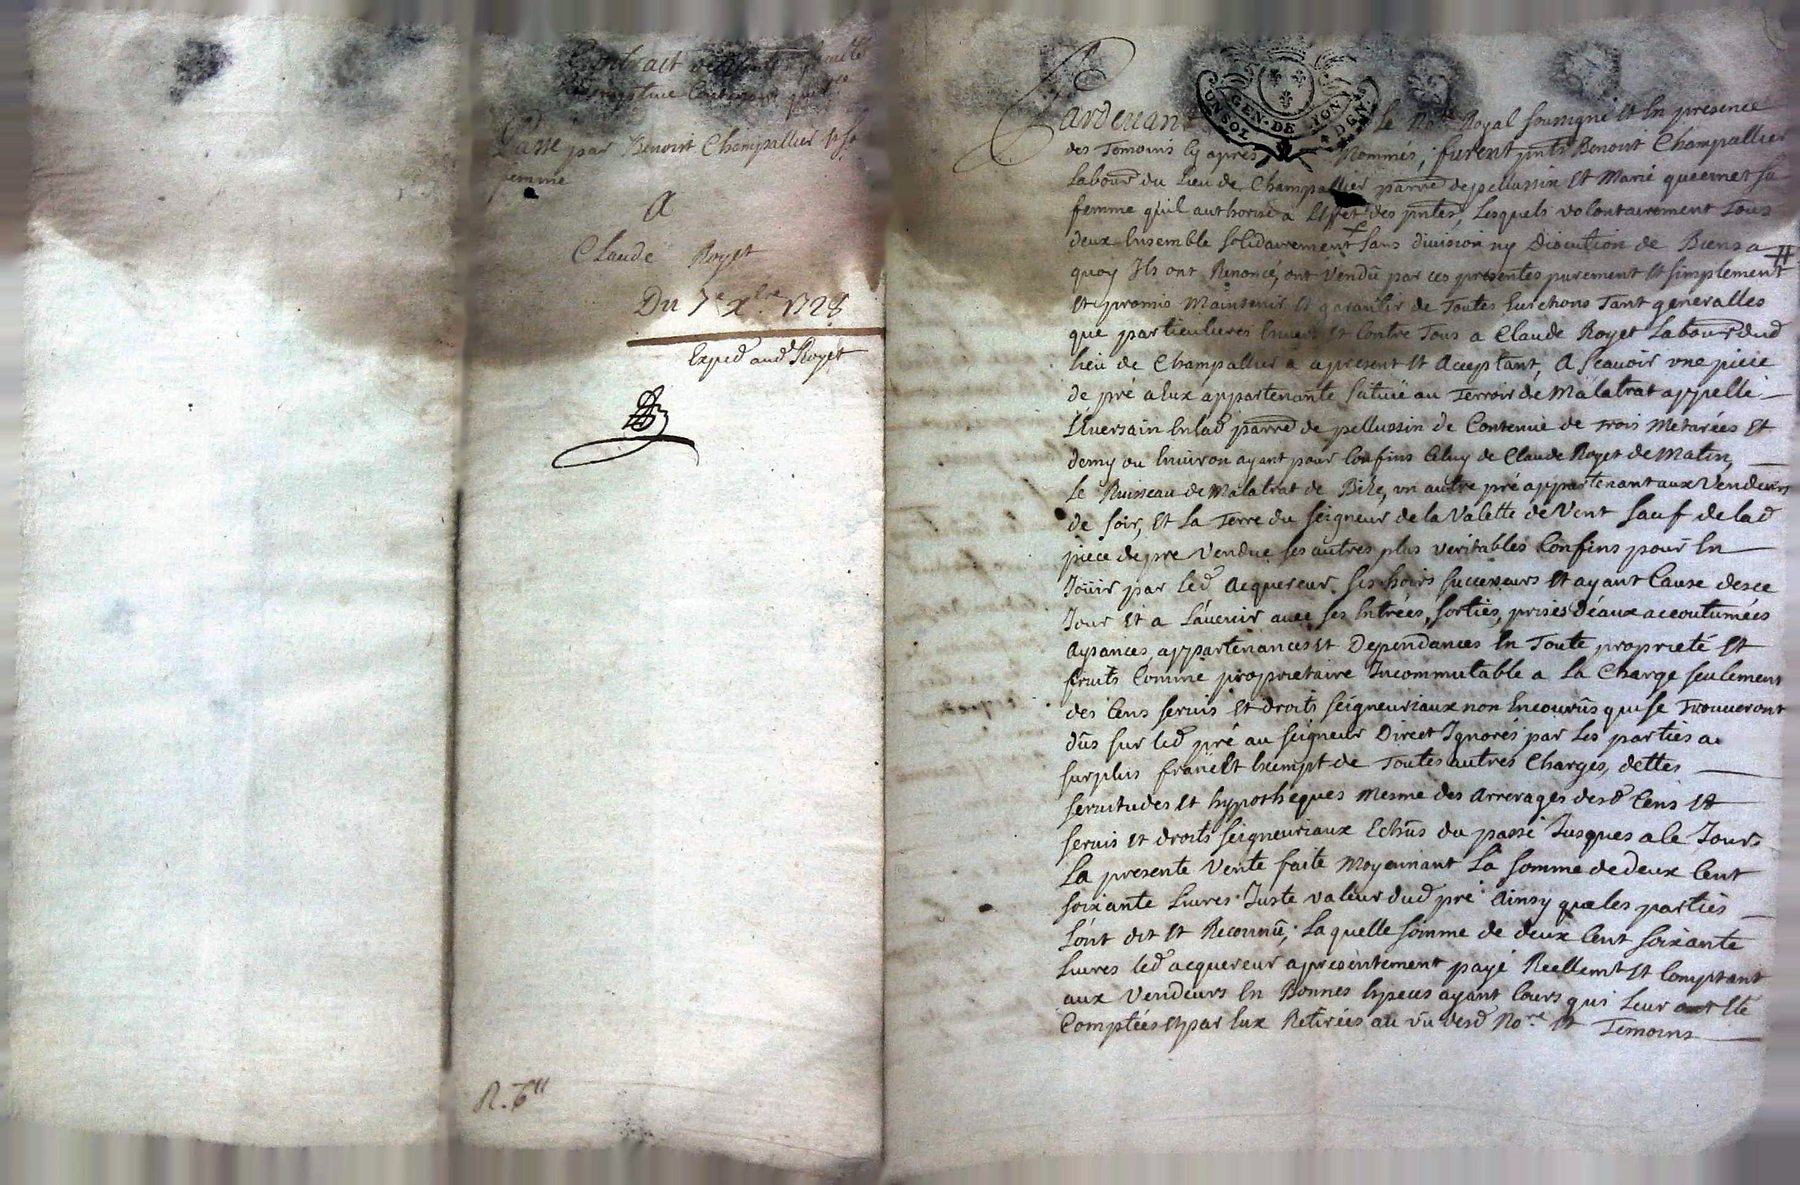 Contrait
Passe par Benoist Champallier & sa
femme
A
Claude Royet
Du 7e Xbre 1728
Exped aud Royet
R. 6ll
GEN. DE
UN SOL
Pardevant Le Nore Royal soussigné Et En presence
des Temoins Cy apres Nommés, furent pnts Benoist Champallier
Labourd du Lieu de Champallier parred de pellussin Et Marie queernet sa
femme quil authorise a Effet des pntes, Lesquels volontairement Tous
deux Ensemble solidairement + sans division ny Discution de Biens a #
quoy Ils ont Renoncé, ont Vendu par ces presentes purement Et simplement
Et promis Maintenir Et garantir de Toutes Evictions Tant generalles
que particulieres Envers Et Contre Tous a Claude Royet Labourd dud
lieu de Champallier a present Et Acceptant, A Scavoir une piece
de pré a Eux appartenante Scituée au Terroir de Malatrat appellé
L'Eversain En lad parred de pellussin de Contenue de trois Metarées Et
demy ou Environ ayant pour Confins Celuy de Claude Royet de Matin,
Le Ruisseau de Malatrat de Bize, un autre pré appartenant aux Vendeurs
de soir, Et La Terre du seigneur de la Valette de Vent sauf de lad
piece de pre Vendue ses autres plus veritables Confins pour En
Joüir par led Acquereur ses hoirs successeurs Et ayant Cause desce
Jour Et a L'avenir avec ses Entrées, sorties, prises d'eaux accoutumées
Aysances, appartenances Et Dependances En Toute proprieté Et
fruits Comme proprietaire Incommutable a La Charge seulement
des Cens servis Et droits seigneuriaux non Encourûs qui se Trouveront
dûs sur led pré au seigneur Direct Ignorés par Les parties a
surplus franc Et Exempt de Toutes autres Charges, dettes
servitudes Et hypotheques Mesme des Arrerages desd Cens Et
servis Et droits seigneuriaux Echûs du passé Jusques a Ce Jour
La presente Vente faite Moyennant La somme de deux Cent
soixante Livres Juste valeur dud pré Ainsy que les parties
L'ont dit Et Reconnû; La quelle somme de deux Cent soixante
Livres led acquereur a presentement payé Reellemt Et Comptant
aux Vendeurs En Bonnes Especes ayant Cours qui Leur ont Eté
Comptées Et par Eux Retirées au vû desd Nore Et Temoins